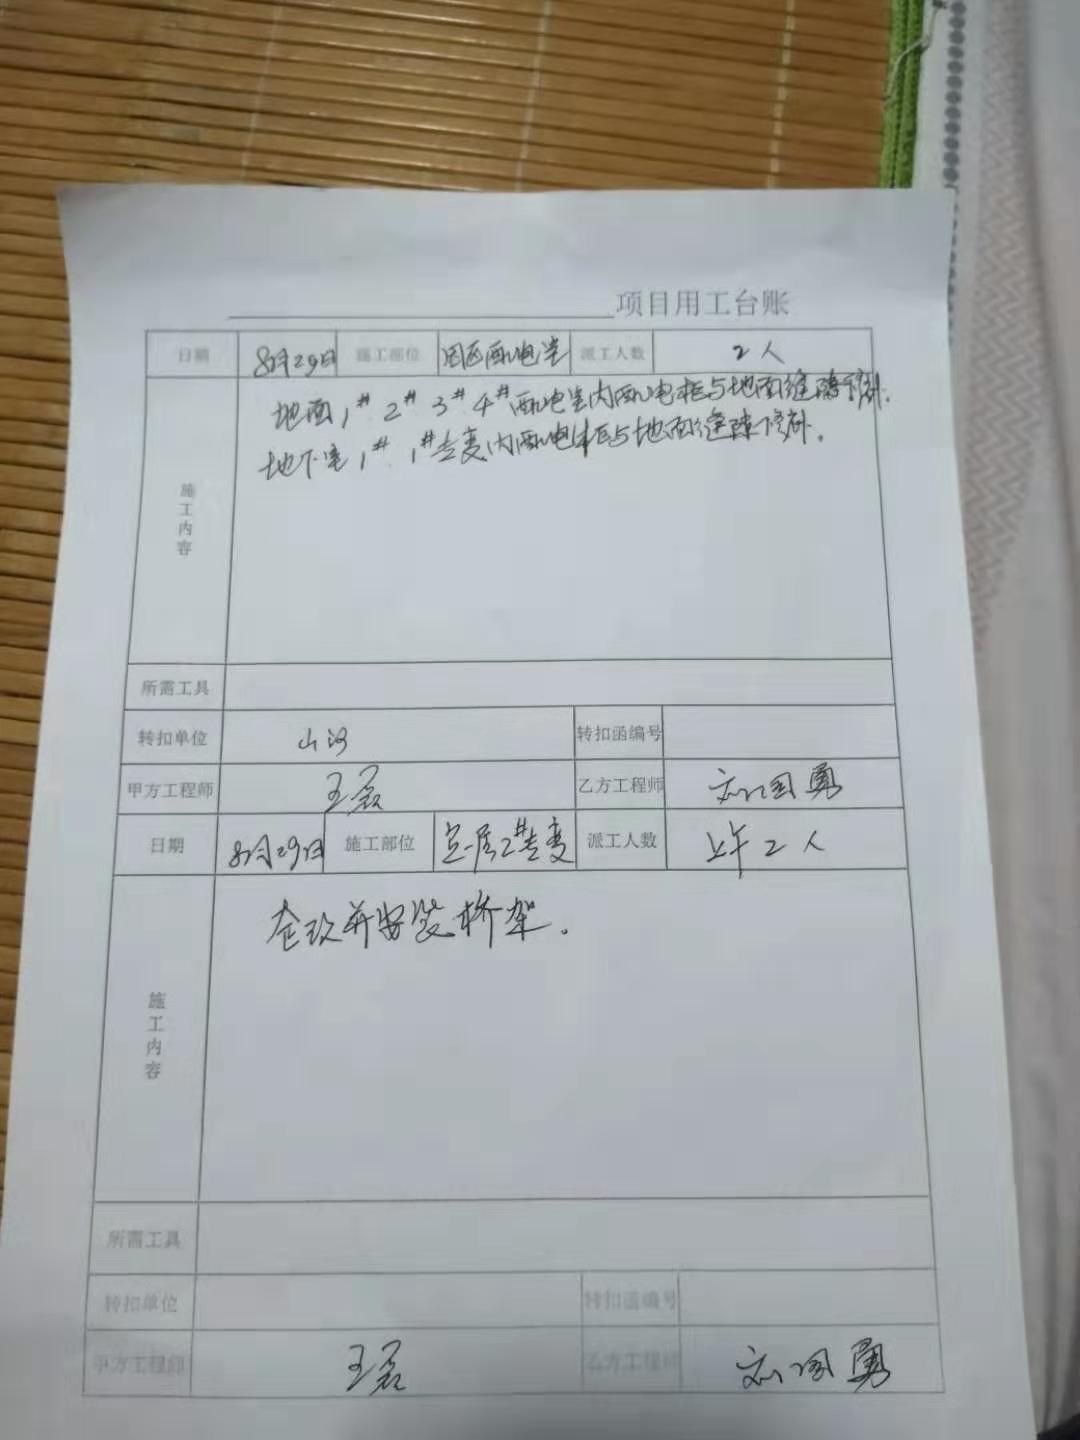 项目用工台账
日期 8月29日 施工部位 园区配电室 派工人数 2人
地面1# 2# 3# 4#配电室内配电柜与地面缝隙修补.
施工内容 地下室1#.1#专变内配电柜与地面缝隙修补.
所需工具
转扣单位 山河 转扣函编号
甲方工程师 王磊 乙方工程师 刘国勇
日期 8月29日 施工部位 2#专变 派工人数 上午2人
施工内容 并安装桥架.
所需工具
转扣单位 转扣函编号
甲方工程师 王磊 乙方工程师 刘国勇